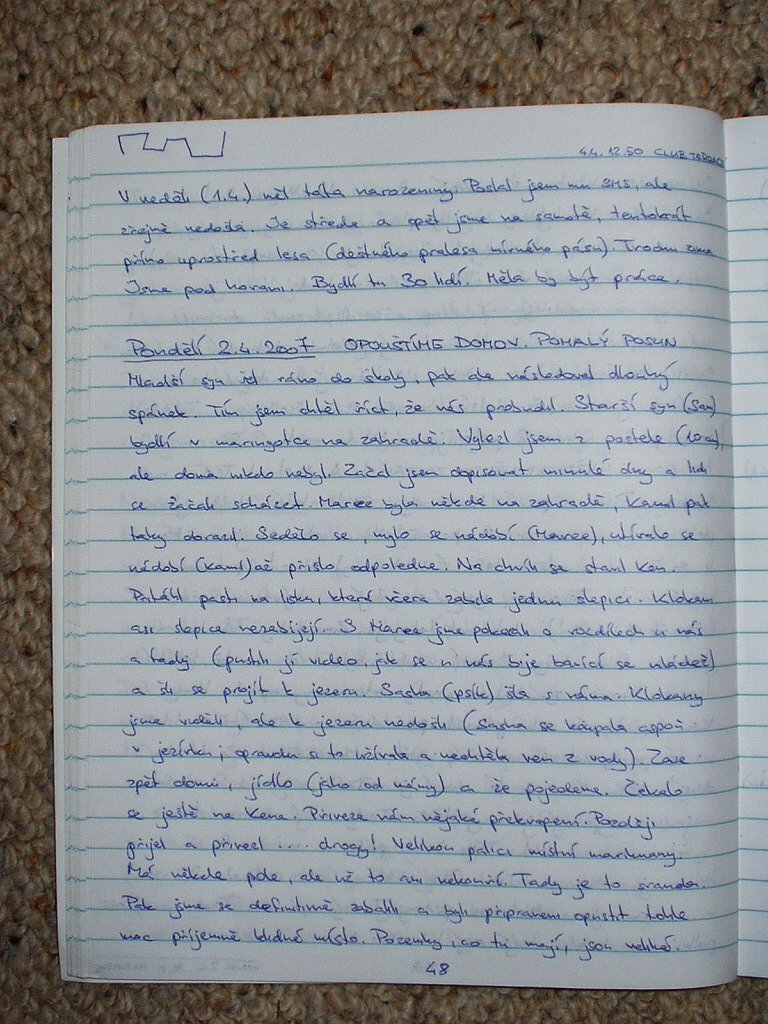 4.4. 12.50 CLUB TERRACE
V neděli (1.4.) měl táta narozeniny. Poslal jsem mu SMS, ale
zřejmě nedošla. Je středa a opět jsme na samotě, tentokrát
přímo uprostřed lesa (deštného pralesa mírného pásu). Trochu zima.
Jsme pod horami. Bydlí tu 30 lidí. Měla by být práce.
Pondělí 2.4.2007 OPOUŠTÍME DOMOV. POMALÝ POSUN
Mladší syn šel ráno do školy, pak ale následoval dlouhý
spánek. Tím jsem chtěl říct, že nás probudil. Starší syn (Sam)
bydlí v maringotce na zahradě. Vylezl jsem z postele (10am),
ale doma nikdo nebyl. Začal jsem dopisovat minulé dny a lidi
se začali scházet. Maree byla někde na zahradě, Kamil pak
taky dorazil. Sedělo se, mylo se nádobí (Maree), utíralo se
nádobí (Kamil) až přišlo odpoledne. Na chvíli se stavil Ken.
Přitáhl past na lišku, která včera zabila jednu slepici. Klokani
asi slepice nezabíjejí. S Maree jme pokecali o rozdílech u nás
a tady (pustili jí video, jak se u nás bije bavící se mládež)
a šli se projít k jezeru. Sasha (psík) šla s náma. Klokany
jsme viděli, ale k jezeru nedošli (Sasha se koupala aspoň
v jezírku; opravdu si to užívala a nechtěla ven z vody). Zase
zpět domů, jídlo (jako od mámy) a že pojedeme. Čekalo
se ještě na Kena. Přiveze nám nějaké překvapení. Později
přijel a přivezl .... drogy! Velikou palici místní marihuany.
Má někde pole, ale už to ani nekouří. Tady je to sranda.
Pak jsme se definitivně zabalili a byli připraveni opustit tohle
moc příjemně klidné místo. Pozemky, co tu mají, jsou veliké.
48